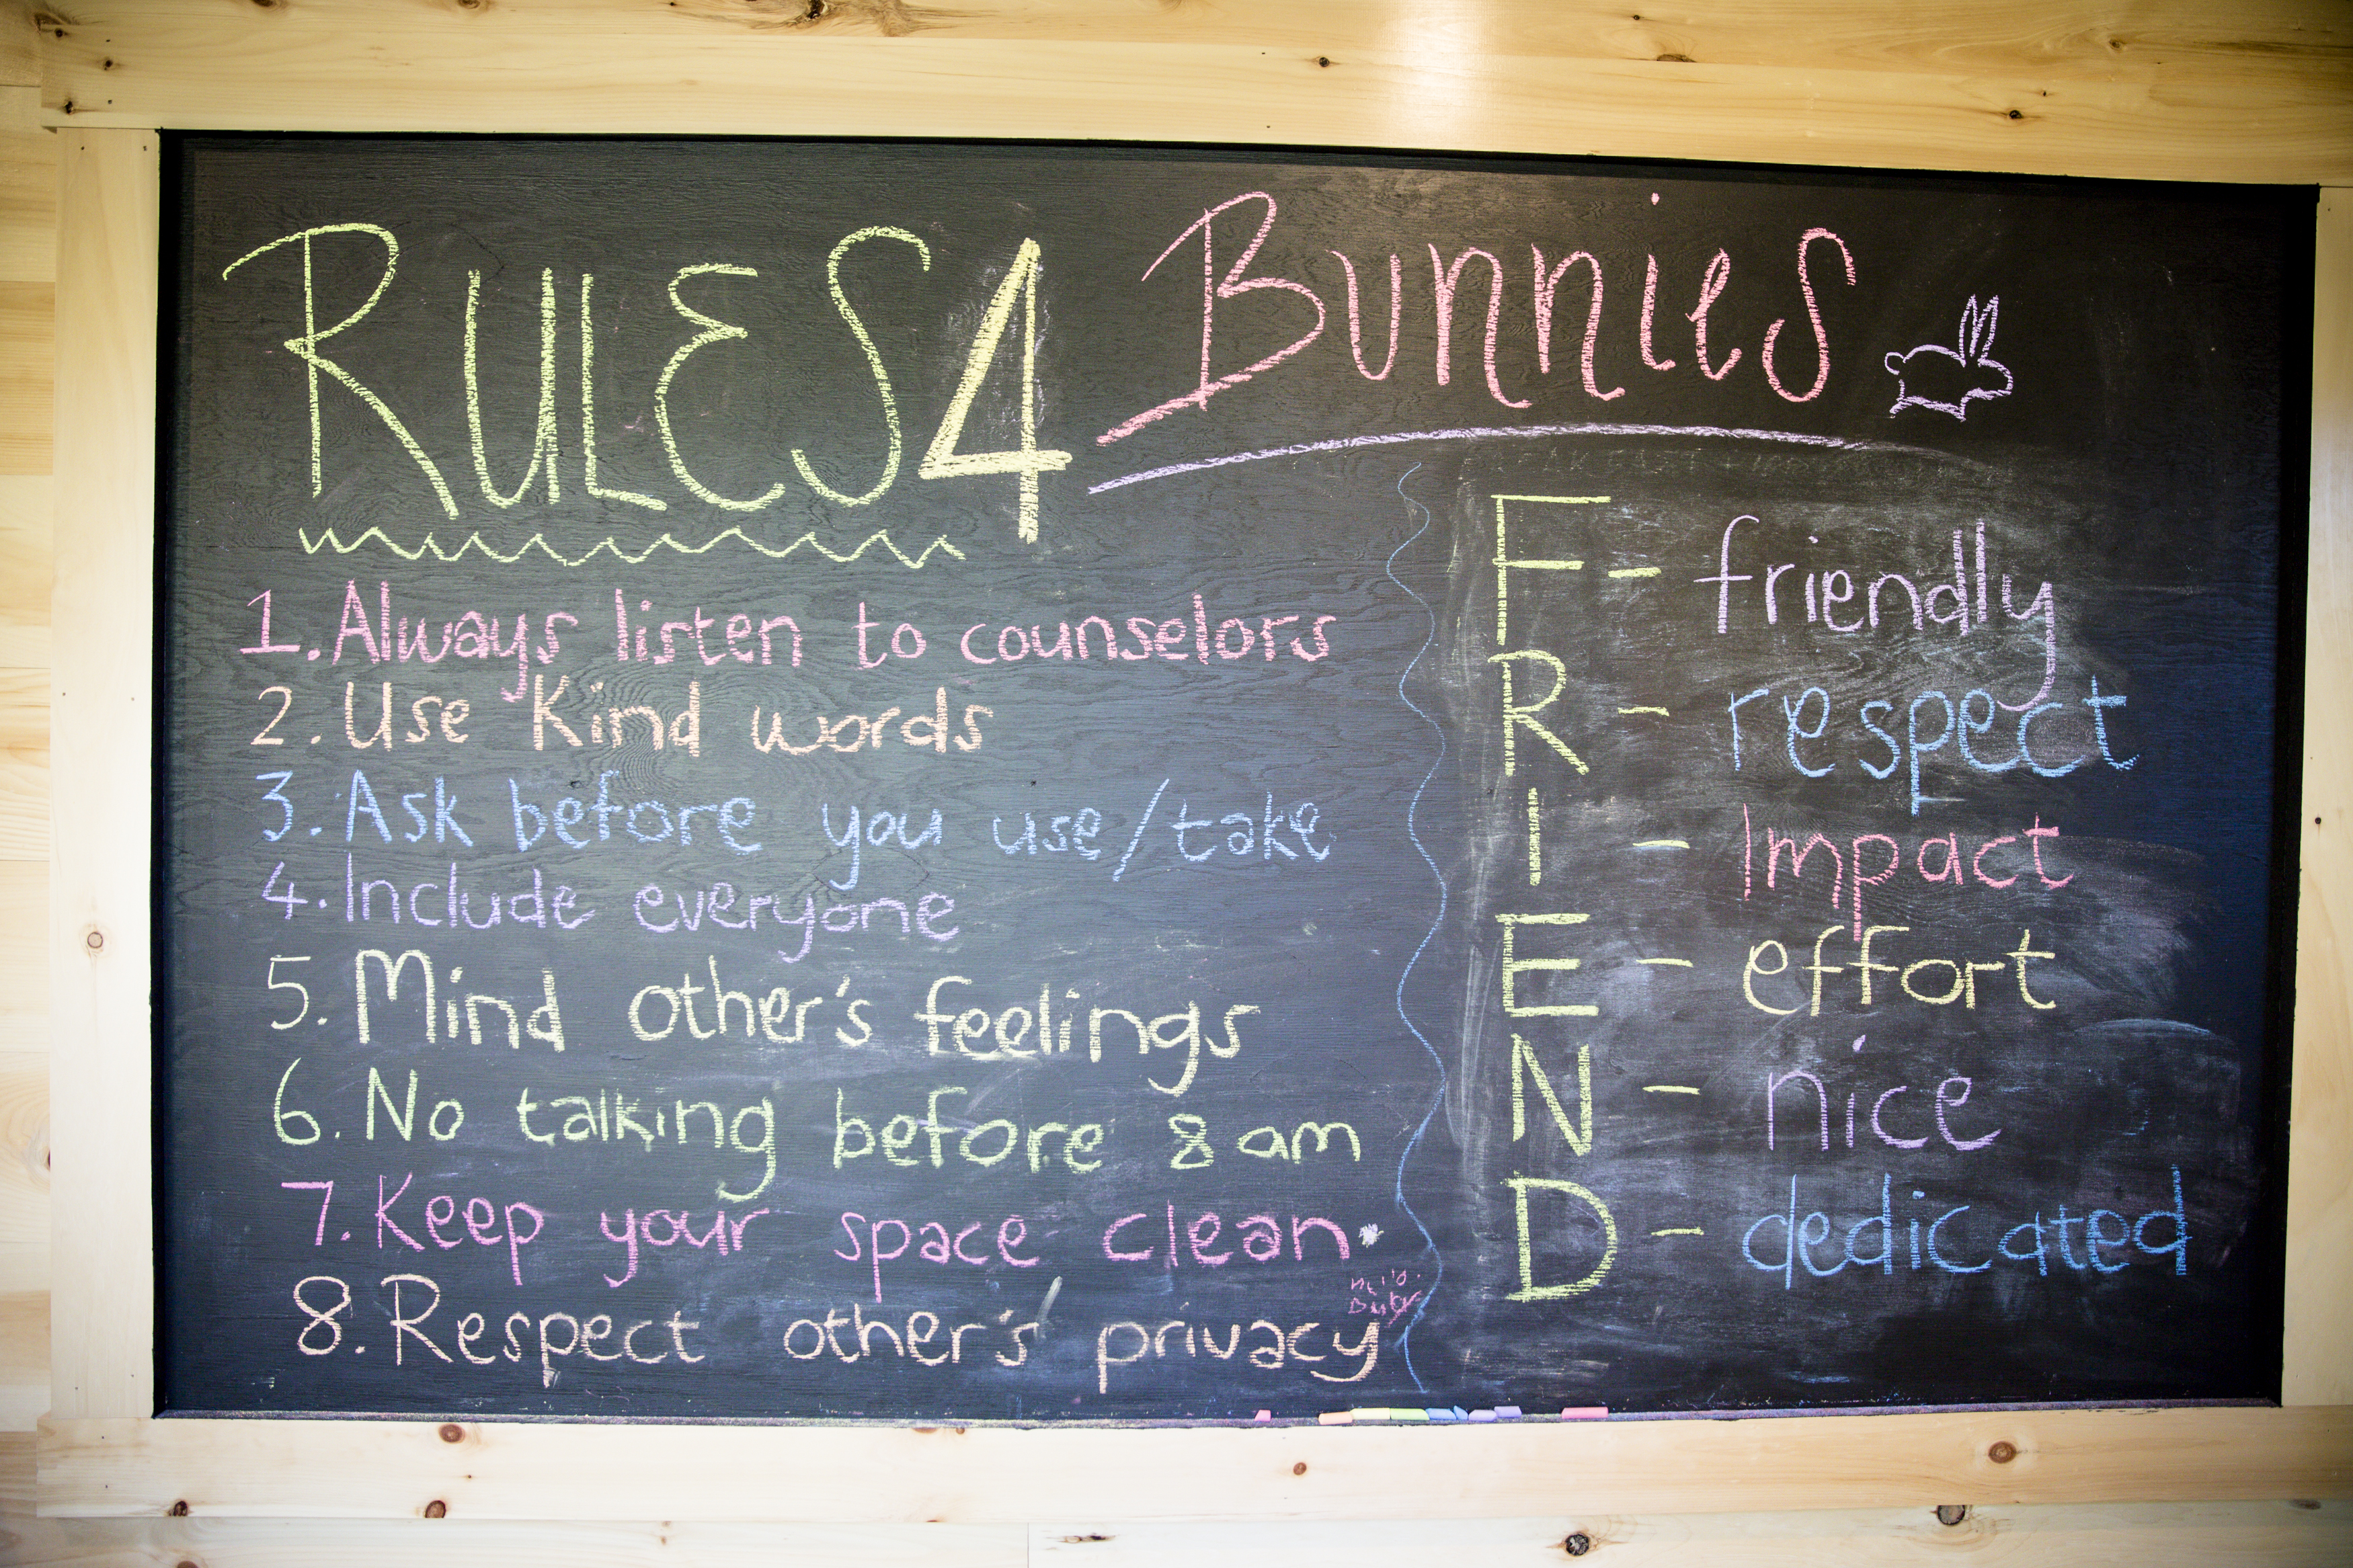 RULES 4 Bunnies
1. Always listen to counselors
2. Use Kind words
3. Ask before you use/take
4. Include everyone
5. Mind other's feelings
6. No talking before 8 am
7. Keep your space clean.
8. Respect other's privacy
F - friendly
R - respect
I - Impact
E - effort
N - nice
D - dedicated